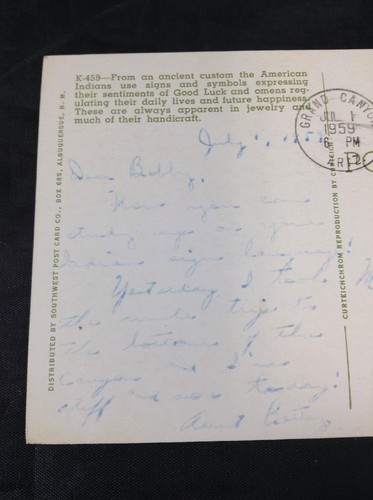 K-459—From an ancient custom the American
Indians use signs and symbols expressing
their sentiments of Good Luck and omens reg-
ulating their daily lives and future happiness.
These are always apparent in jewelry and
much of their handicraft.
GRAND CANYON
JUL 1
1959
6 PM
ARIZ.
July 1, 1959
Dear Bobby,
Now you can
study up on your
Indian sign language!
Yesterday I took
the mule trip to
the bottom of the
canyon and I'm
stiff and sore today!
Aunt Betty
DISTRIBUTED BY SOUTHWEST POST CARD CO., BOX 685, ALBUQUERQUE, N. M.
CURTEICHCHROM REPRODUCTION BY CURTEICH